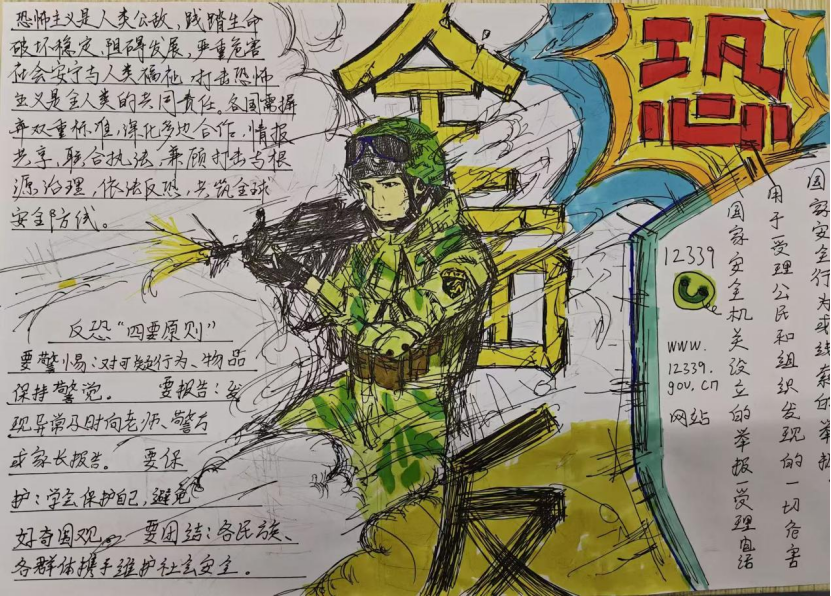 恐怖主义是人类公敌，践踏生命
破坏稳定、阻碍发展，严重危害
社会安宁与人类福祉。打击恐怖
主义是全人类的共同责任。各国需摒
弃双重标准，深化多边合作，情报
共享，联合执法，兼顾打击与根
源治理，依法反恐，共筑全球
安全防线。
反恐“四要原则”
要警惕：对可疑行为、物品
保持警觉。 要报告：发
现异常及时向老师、警方
或家长报告。 要保
护：学会保护自己，避免
好奇围观。 要团结：各民族、
各群体携手维护社会安全。
全
面
反
恐
12339
www.
12339.
gov.cn
网站
国家安全机关设立的举报受理电话
用于受理公民和组织发现的一切危害
国家安全行为或线索的举报